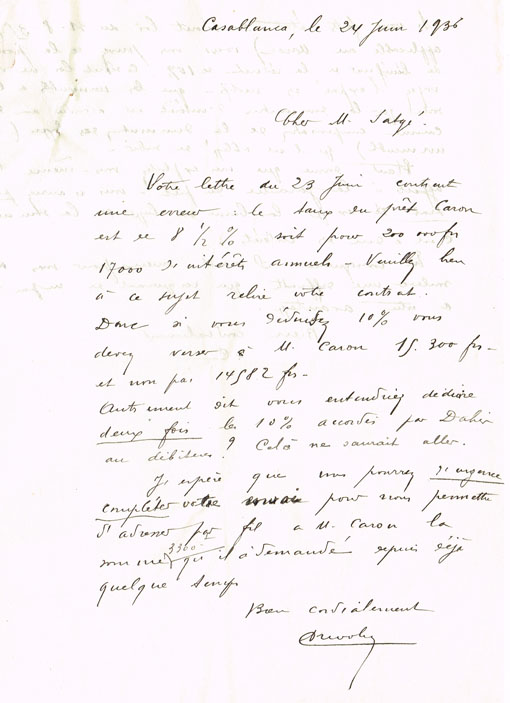 Casablanca, le 24 Juin 1936
Cher M. Satgé
Votre lettre du 23 Juin contient
une erreur : le taux du prêt Caron
est de 8 1/2 % soit pour 200 000 frs
17000 d'intérêts annuels - Veuillez bien
à ce sujet relire votre contrat.
Donc si vous déduisez 10% vous
devez verser à M. Caron 15.300 frs -
et non pas 14582 frs -
Autrement dit vous entendriez déduire
deux fois les 10% accordés par Dahir
au débiteur ? Celà ne saurait aller.
J'espère que vous pourrez d'urgence
compléter votre envoi pour nous permettre
d'adresser par fil à M. Caron la
3360
somme qu'il a demandé depuis déjà
quelque temps
Bien cordialement